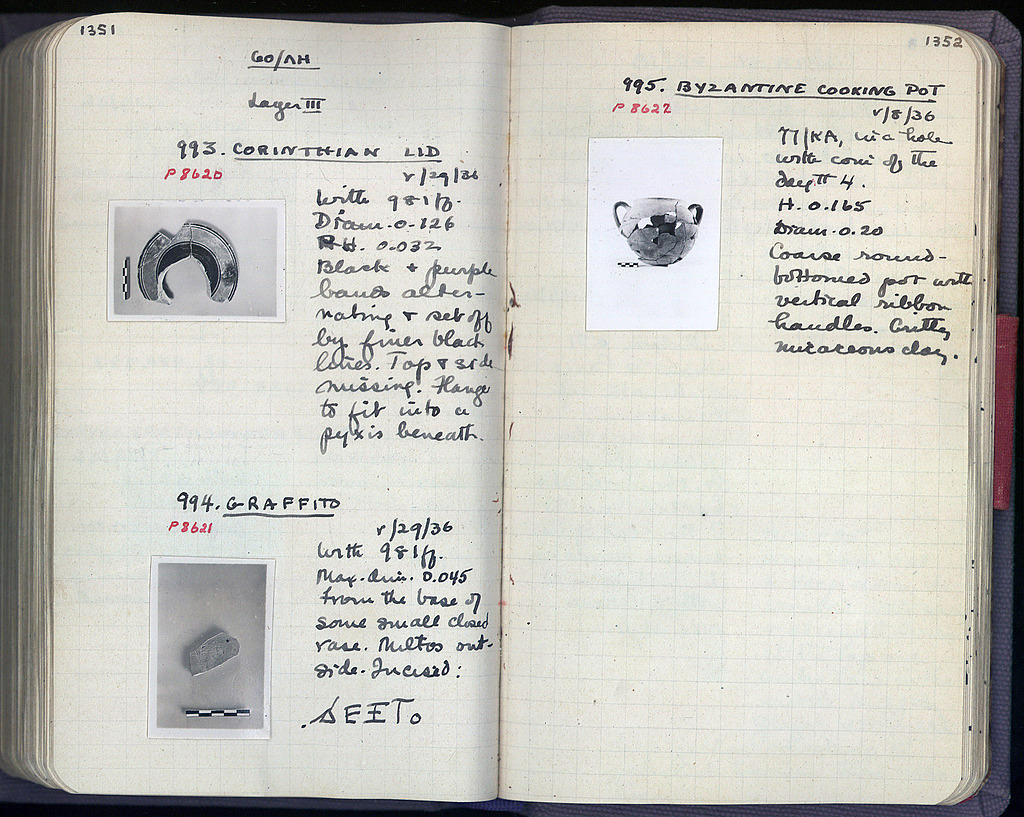 1351
60/ΛΗ
Layer III
993. CORINTHIAN LID
P 8620
v/29/36
With 981ff.
Diam. 0.126
H. 0.032
Black + purple
bands alter-
nating + set off
by finer black
lines. Top + side
missing. Flange
to fit into a
pyxis beneath.
994. GRAFFITO
P 8621
v/29/36
With 981ff.
Max. dim. 0.045
From the base of
some small closed
vase. Miltos out-
side. Incised:
1352
995. BYZANTINE COOKING POT
P 8622
v/8/36
77/ΚΑ, in a hole
with coin of the
4.
H. 0.165
Diam. 0.20
Coarse round-
bottomed pot with
vertical ribbon
handles. Gritty,
micaceous clay.